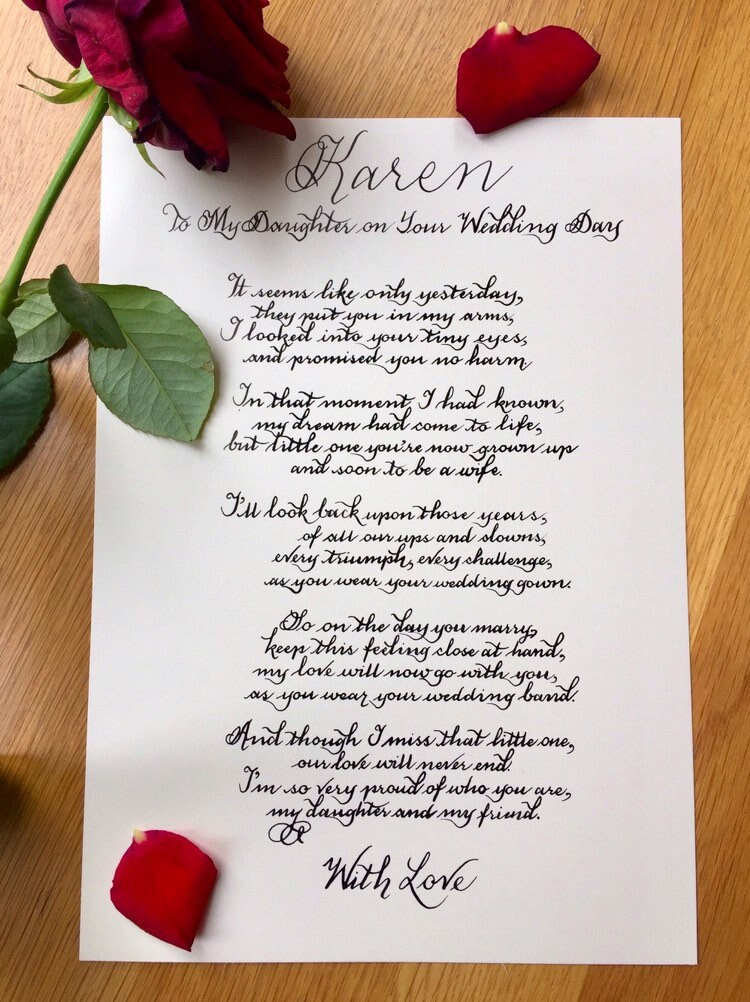 Karen
To My Daughter on Your Wedding Day
It seems like only yesterday,
they put you in my arms,
I looked into your tiny eyes,
and promised you no harm
In that moment I had known,
my dream had come to life,
but little one you're now grown up
and soon to be a wife.
I'll look back upon those years,
of all our ups and downs,
every triumph, every challenge,
as you wear your wedding gown.
So on the day you marry,
keep this feeling close at hand,
my love will now go with you,
as you wear your wedding band.
And though I miss that little one,
our love will never end.
I'm so very proud of who you are,
my daughter and my friend.
With Love